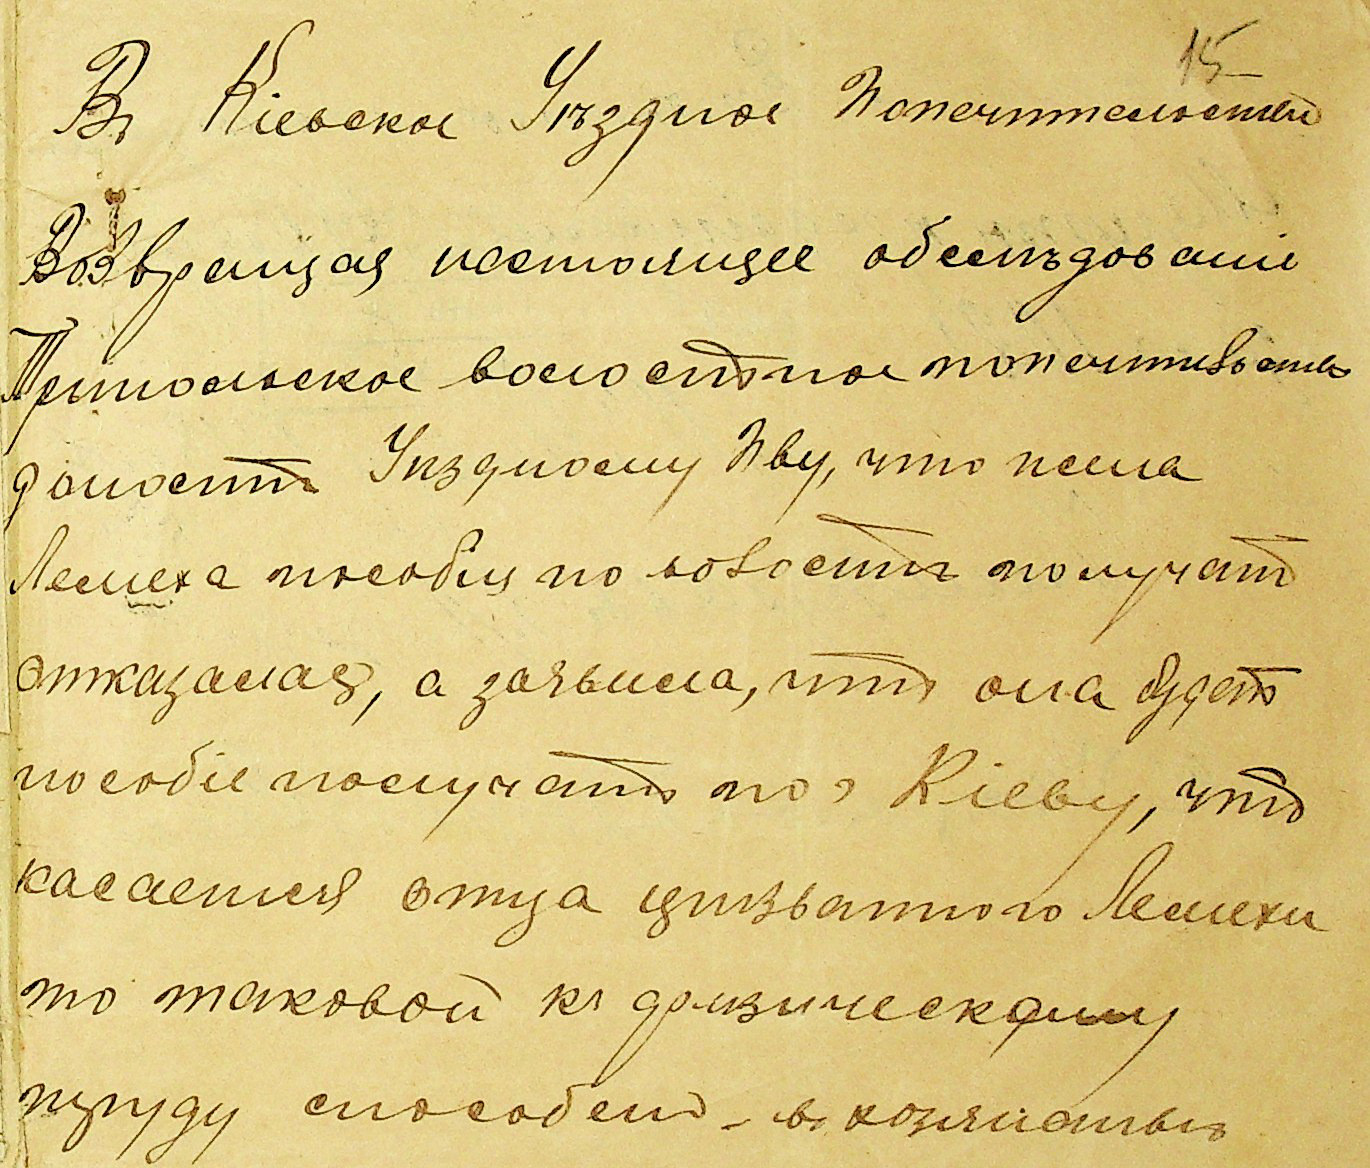 15
Въ Кіевское Уѣздное Попечительство
Возвращая настоящее обслѣдованіе
волостное попечительство
доноситъ Уѣздному П-ву, что жена
Лемеха пособія по волости получать
отказалась, а заявила, что она будетъ
пособіе получать по г Кіеву, что
касается отца призванного Лемехи
то таковой къ физическому
труду способенъ - въ хозяйствѣ